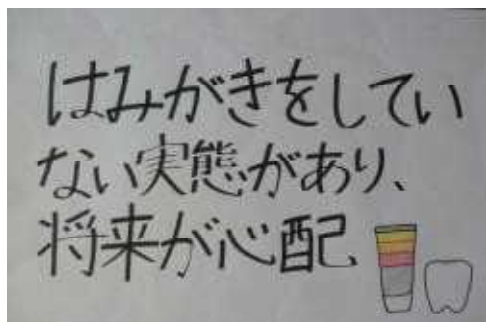 はみがきをしてい
ない実態があり、
将来が心配